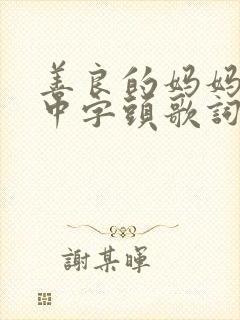 善良的妈妈
中字頭歌詞
謝某暉